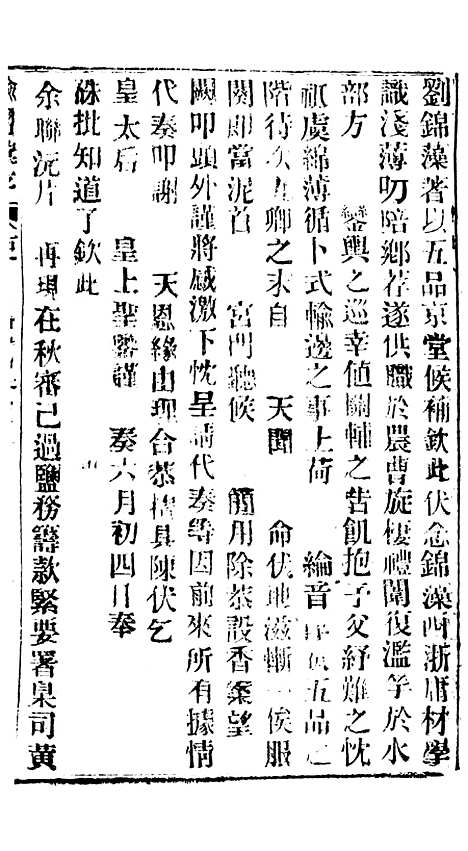 劉錦藻著以五品京堂候補欽此伏念錦藻西浙庸材學
識淺薄叨陪鄉荐遂供職於農曹旋捷禮闈復濫竽於水
部方　鑾輿之巡幸値關輔之告飢抱子父紓難之忱
祇虔綿薄循卜式輸邊之事上荷　綸音　五品
階待次九卿之末自　天聞　命伏地滋慚一俟服
闋卽當泥首　宮門聽候　簡用除恭設香案望
闕叩頭外謹將感激下忱呈請代奏等因前來所有據情
代奏叩謝　天恩緣由理合恭摺具陳伏乞
皇太后　皇上聖鑒謹　奏六月初四日奉
硃批知道了欽此
余聯沅片　再現在秋審已過鹽務籌款緊要署臬司黃